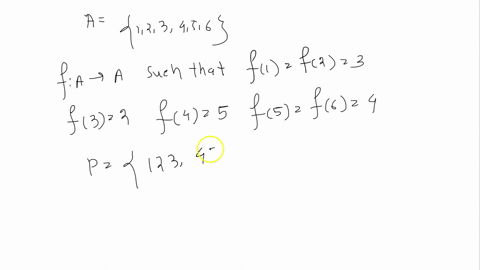 A = {1,2,3, 4,5,6}
f: A → A such that f(1) = f(2) = 3
f(3) = 2 f(4) = 5 f(5) = f(6) = 4
P = { 123, 4